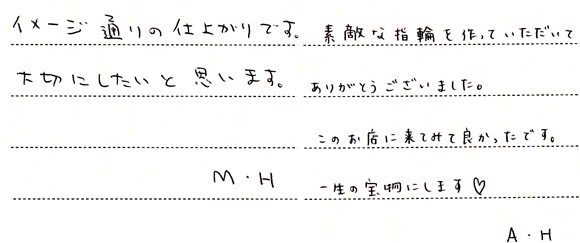 イメージ通りの仕上がりです。
大切にしたいと思います。
M・H
素敵な指輪を作っていただいて
ありがとうございました。
このお店に来てみて良かったです。
一生の宝物にします♡
A・H